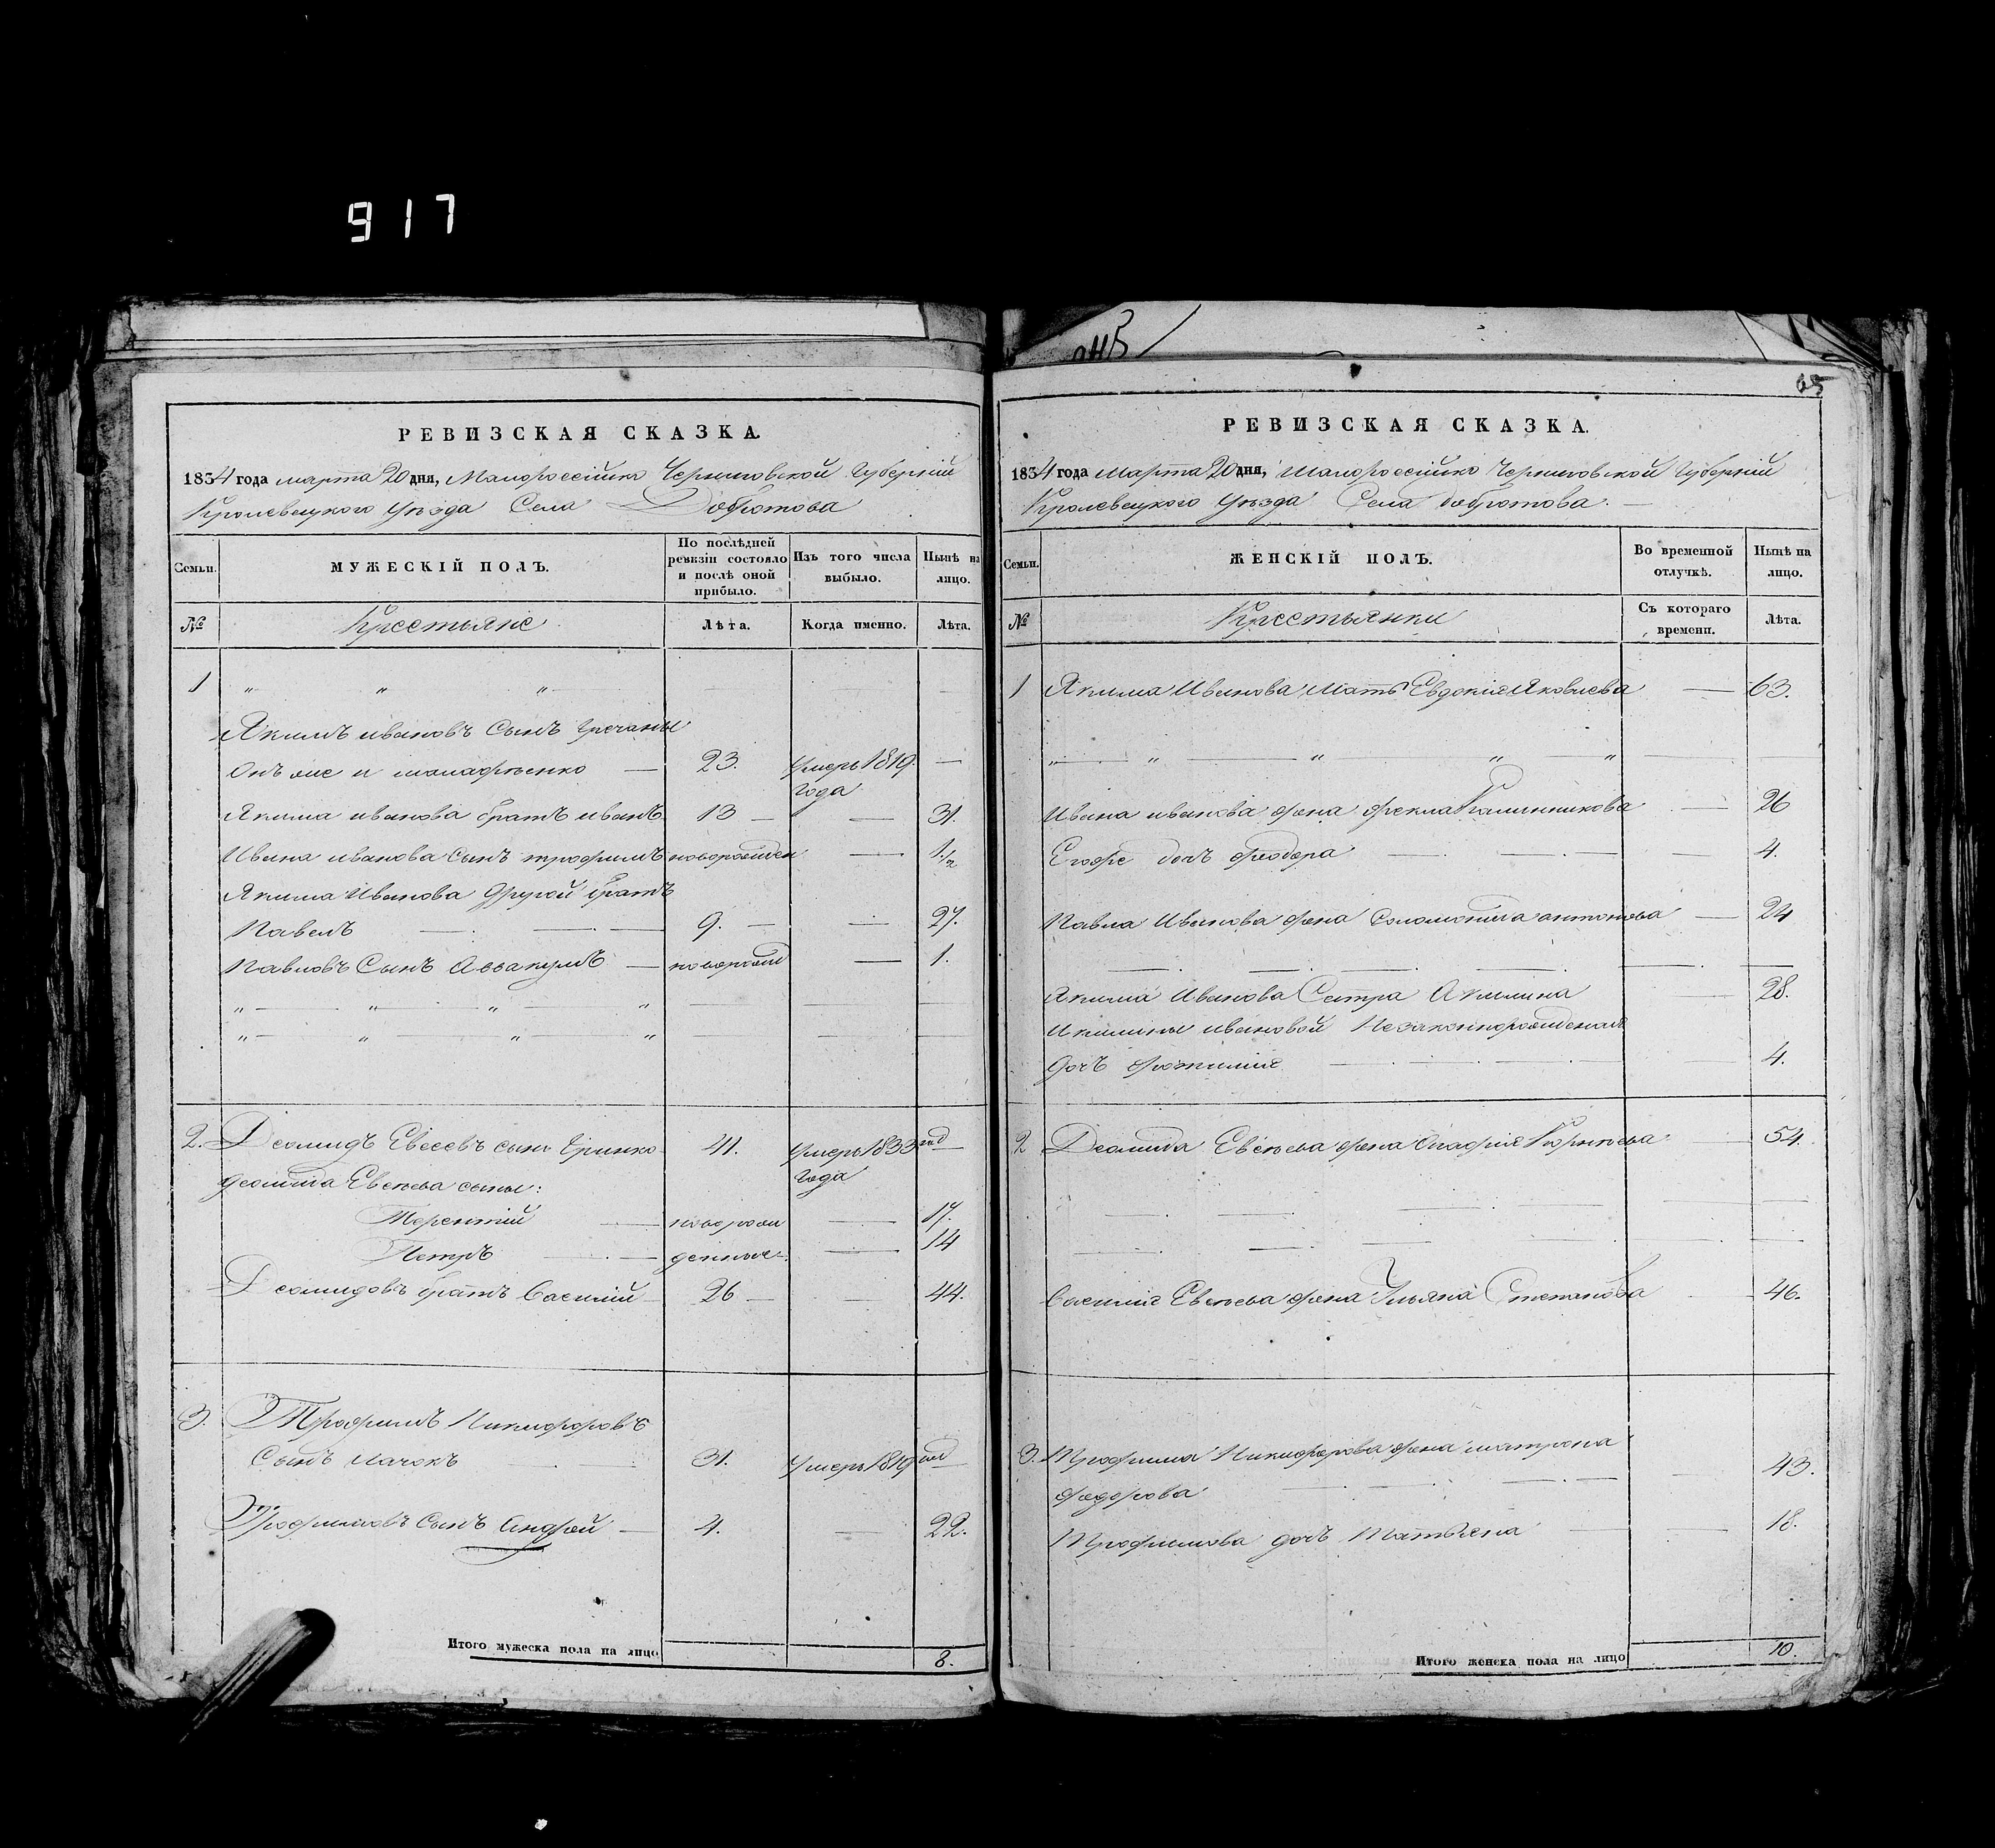 917
РЕВИЗСКАЯ СКАЗКА.
1834 года марта 20 дня, Малороссійско Черниговской Губерніи
Кролевецкого Уѣзда Села Добротова
Семьи.
МУЖЕСКІЙ ПОЛЪ.
По послѣдней ревизіи состояло и послѣ оной прибыло.
Изъ того числа выбыло.
Нынѣ на лицо.
№
Крестьяне
Лѣта.
Когда именно.
Лѣта.
1 " " "
Якимъ Ивановъ Сынъ
Онъ же и 23. умеръ 1819
года
Якима Иванова братъ Иванъ 13 31.
Ивана Иванова Сынъ трофимъ новорожден 1/2
Якима Иванова другой братъ
Павелъ 9. 27.
Павловъ Сынъ Аввакумъ новорожд 1.
" " " "
" " " "
2. Деомидъ Евсеевъ сынъ Гринко 41. умеръ 1833 год
года
Деомида Евсѣева сыны:
Терентій новорож 17.
Петръ денные 14
Деомидовъ братъ Василій 26 44.
3. Трофимъ Никифоровъ
Сынъ 31. умеръ 1819 год
Трофимовъ Сынъ Андрей 4. 22.
Итого мужеска пола на лицо 8.
65
РЕВИЗСКАЯ СКАЗКА.
1834 года Марта 20 дня, Малороссійско Черниговской Губерніи
Кролевецкого Уѣзда Села Добротова.
Семьи.
ЖЕНСКІЙ ПОЛЪ.
Во временной отлучкѣ.
Нынѣ на лицо.
№
Крестьянки
Съ котораго времени.
Лѣта.
1 Якима Иванова Мать Евдокія Яковлева 63.
" " " " "
Ивана иванова жена фекла Калинникова 26
Егоже дочь феодора 4.
Павла Иванова жена Соломонида антонова 24
Якима Иванова Сестра Акилина 28.
Акилины ивановой Незаконнорожденная
дочь 4.
2 Деомида Евсѣева жена Агафія Корнѣева 54.
Василія Евсѣева жена Ульяна Степанова 46.
3. Трофима Никифорова жена матрона
федорова 43.
Трофимова дочь Татьяна 18.
Итого женска пола на лицо 10.